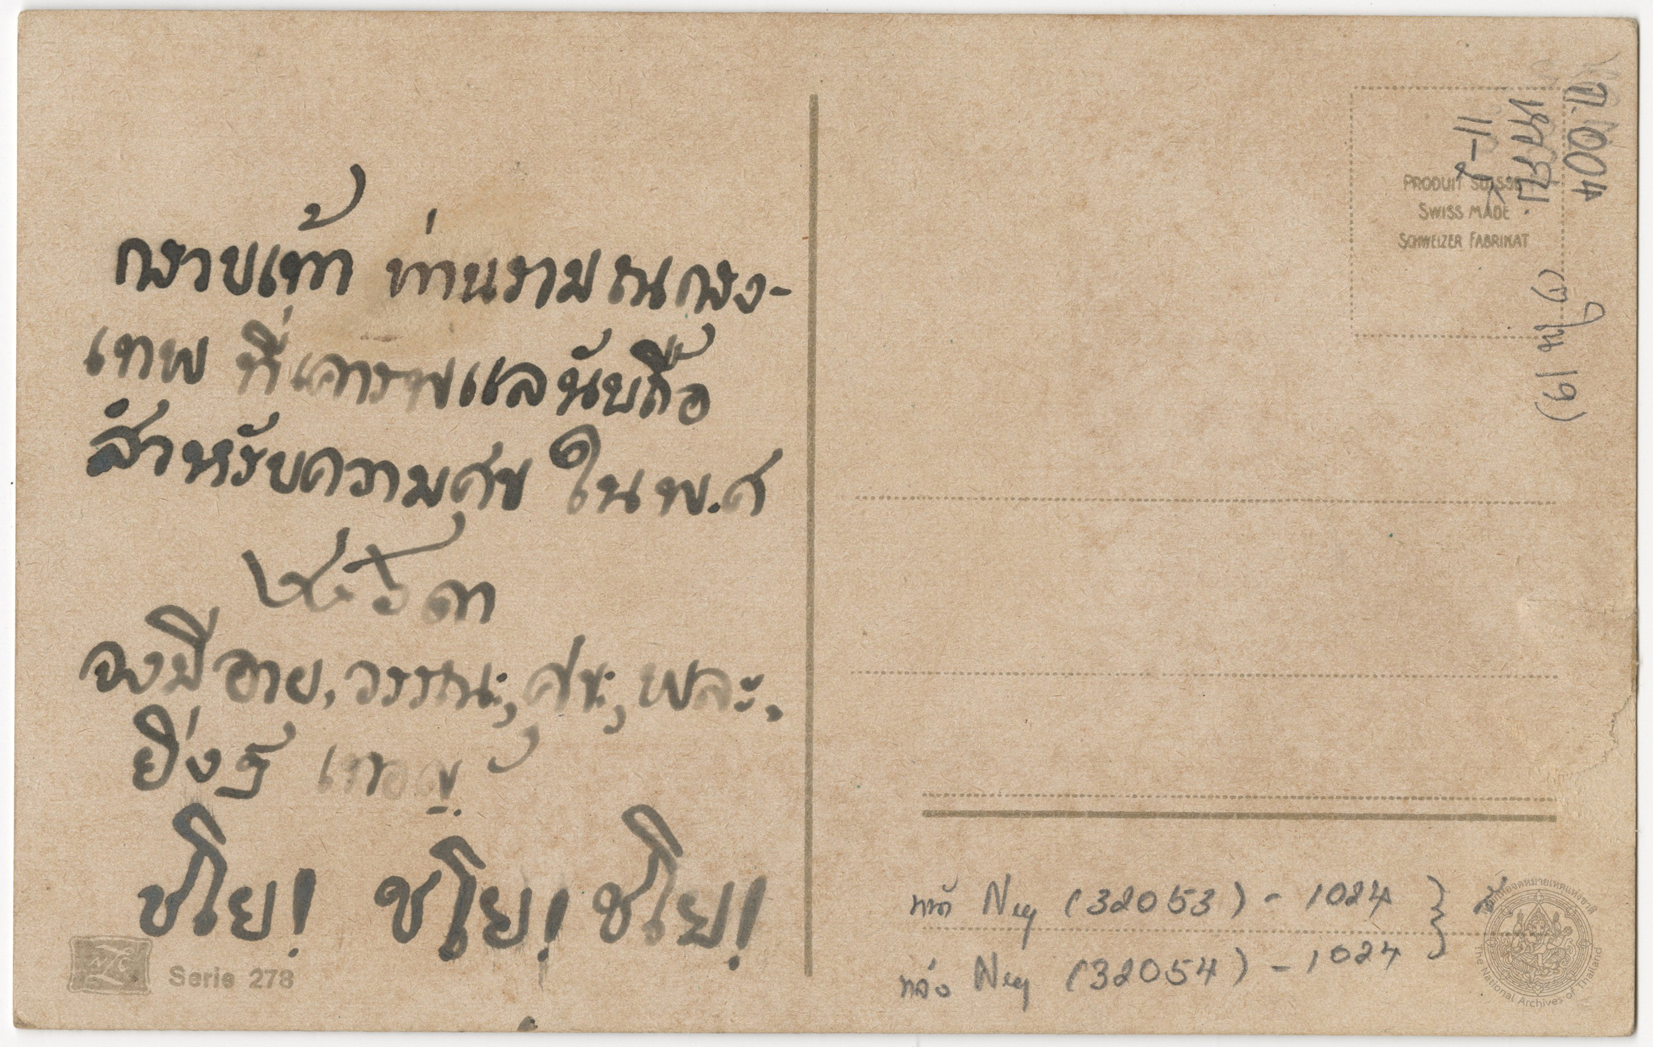 กราบเท้า ท่านราม ณ กรุง-
เทพ ที่เคารพแลนับถือ
สำหรับความศุข ในพ.ศ
จงมีอายุ, วรรณะ, ศุขะ, พละ,
ยิ่งๆ เทอญ
ชโย! ชโย! ชโย!
Serie 278
PRODUIT SUISSE
SWISS MADE
SCHWEIZER FABRIKAT
004
หจภ.
(ๅ ใน 19)
หน้า Neg (32053) - 1024
หลัง Neg (32054) - 1024
The National Archives of Thailand